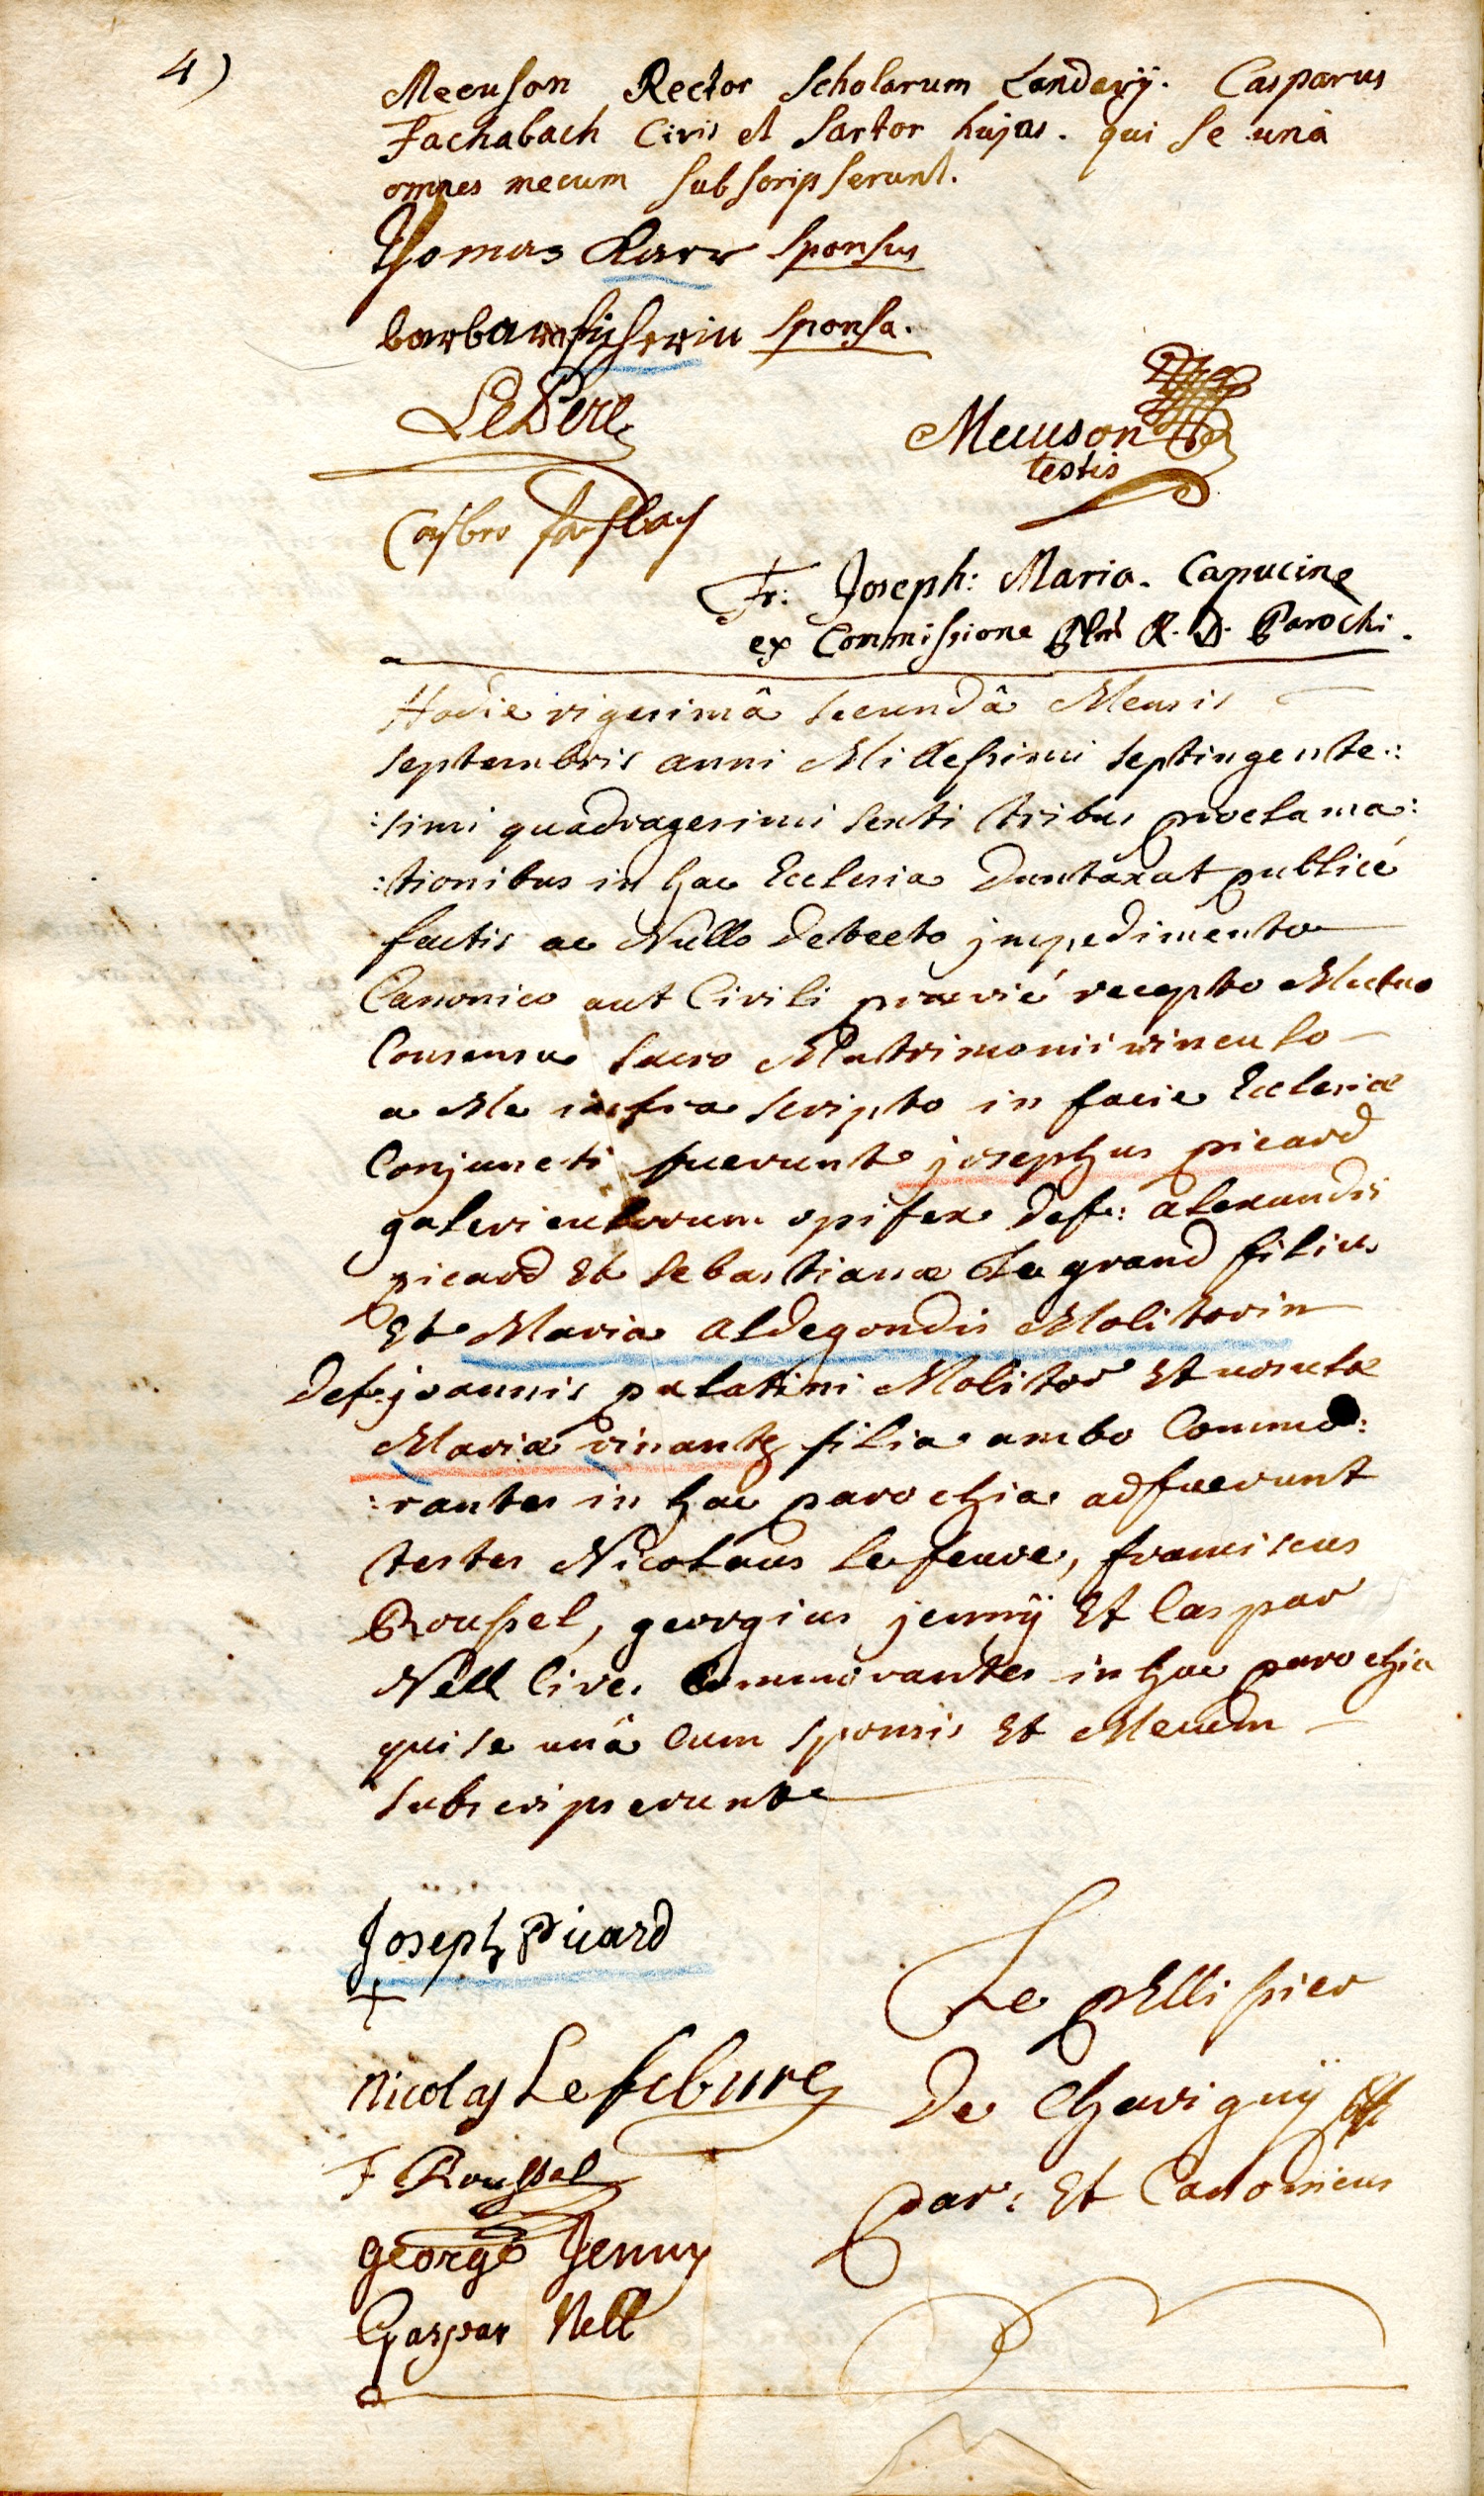 4)
Mecuson Rector Scholarum Landavÿ. Casparus
Fachabach Civis et Sartor hujas. qui se unà
omnes mecum subscripserunt.
Thomas Karr sponsus
barbara fischerin sponsa.
LePere
Mecuson
testis
Casber fachbach
Fr: Joseph: Maria. Capucine
ex Commissione R. D. Parochi.
Hodie vigesimâ secundâ Mensis
septembris anni Millesimi septingente:
:simi quadragesimi sexti tribus proclama:
:tionibus in hac Ecclesia duntaxat publicé
factis ac Nullo detecto jmpedimento
Canonico aut Civili praevié recepto Mutuo
Consensu sacro Matrimonii vinculo
a Me infra scripto in facie Ecclesiæ
Conjuncti fuerunt josephus picard
galericulorum opifex def: alexandri
picard Et sebastianæ Le grand filius
Et Maria aldegondis Molitorin
def: joannis palatini Molitor Et uxoris
Mariæ vinantz filia ambo Commo:
:rantes in hac parochia adfuerunt
testes Nicolaus lefeure, franciscus
Roussel, georgius jennÿ Et Caspar
Nell Cives Commorantes in hac parochia
qui se unâ Cum sponsis Et Mecum
subscripserunt
Joseph Picard
+
Nicolas Lefebure
F Roussel
george Jenny
Gaspar Nell
Le pellissier
De Chavignÿ
par: Et Canonicus